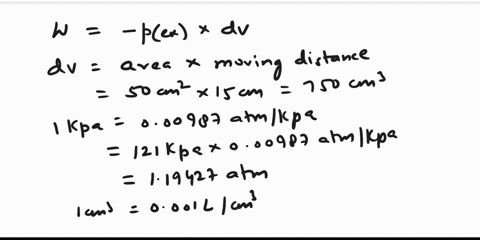 W = -p(ex) × dv
dv = area × moving distance
= 50 cm² × 15 cm = 750 cm³
1 Kpa = 0.00987 atm/Kpa
= 121 Kpa × 0.00987 atm/Kpa
= 1.19427 atm
1 cm³ = 0.001 L/cm³